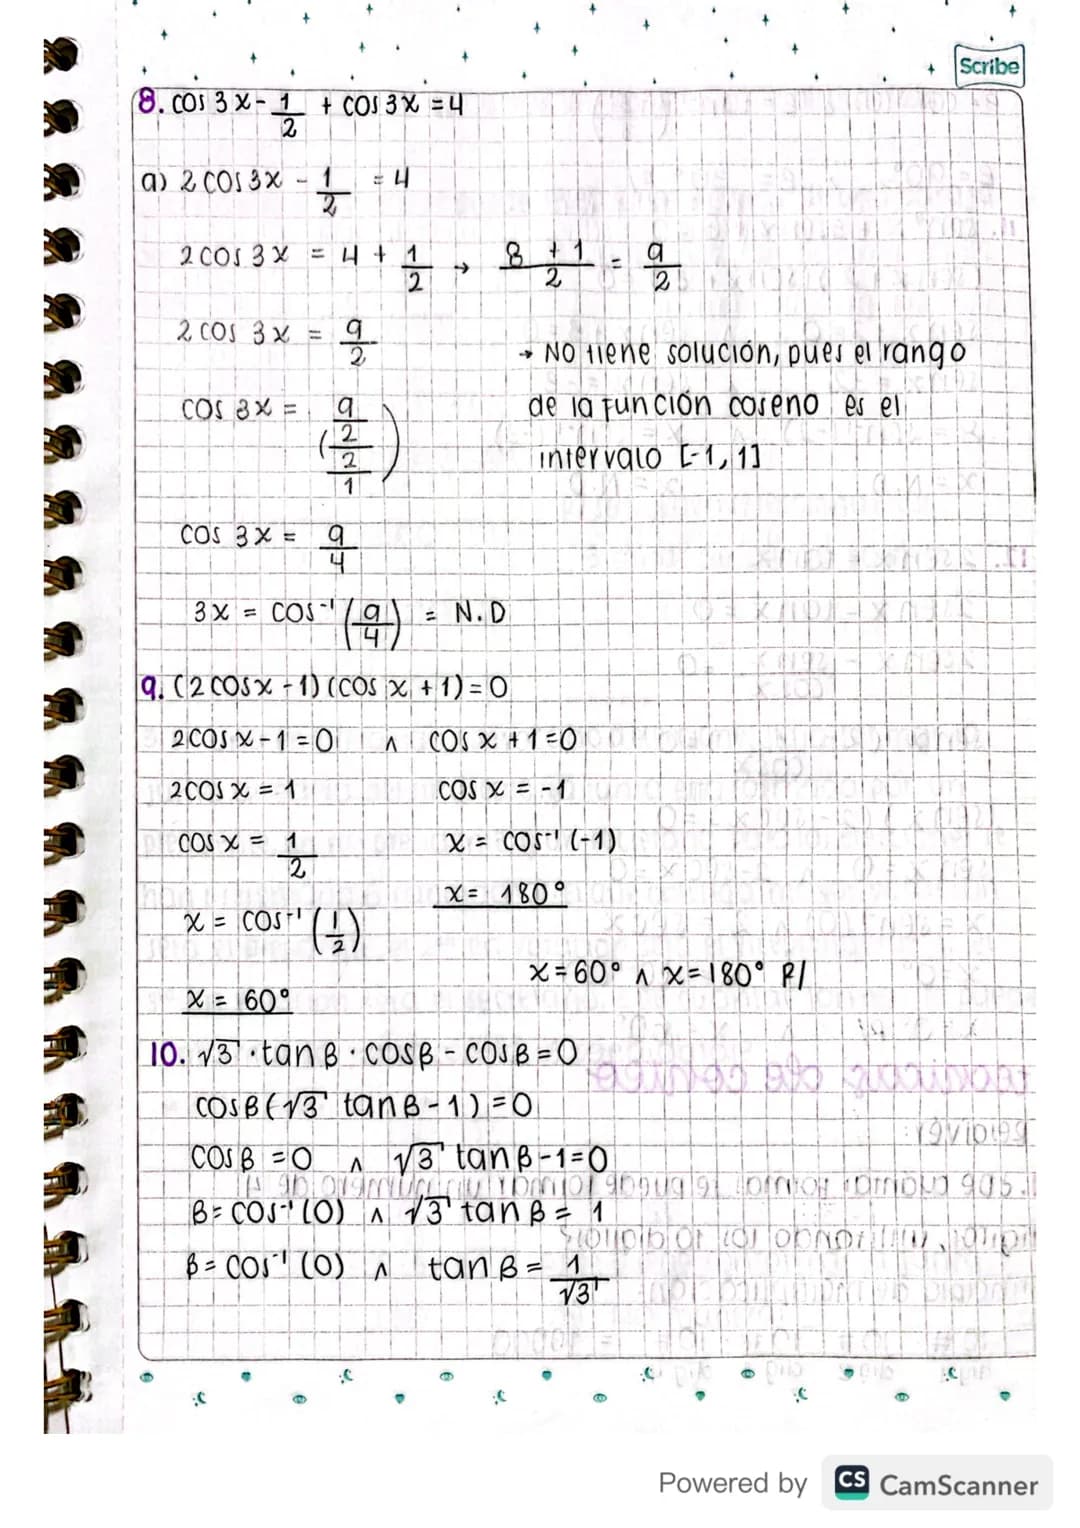 Scribe
8. cos 3x - 1/2 + cos 3x = 4
a) 2 cos 3x - 1/2 = 4
2 cos 3x = 4 + 1/2 → 8 + 1/2 = 9/2
2 cos 3x = 9/2
→ No tiene solución, pues el rango
de la función coseno es el
intervalo [-1, 1]
cos 3x = (9/2 / 2/1)
cos 3x = 9/4
3x = cos⁻¹ (9/4) = N.D
9. (2 cos x - 1) (cos x + 1) = 0
2 cos x - 1 = 0 ∧ cos x + 1 = 0
2 cos x = 1 cos x = -1
cos x = 1/2 x = cos⁻¹ (-1)
x = cos⁻¹ (1/2) x = 180°
x = 60° x = 60° ∧ x = 180° R/
10. √3 · tan β · cos β - cos β = 0
cos β (√3 tan β - 1) = 0
cos β = 0 ∧ √3 tan β - 1 = 0
β = cos⁻¹ (0) ∧ √3 tan β = 1
β = cos⁻¹ (0) ∧ tan β = 1/√3
Powered by CS CamScanner